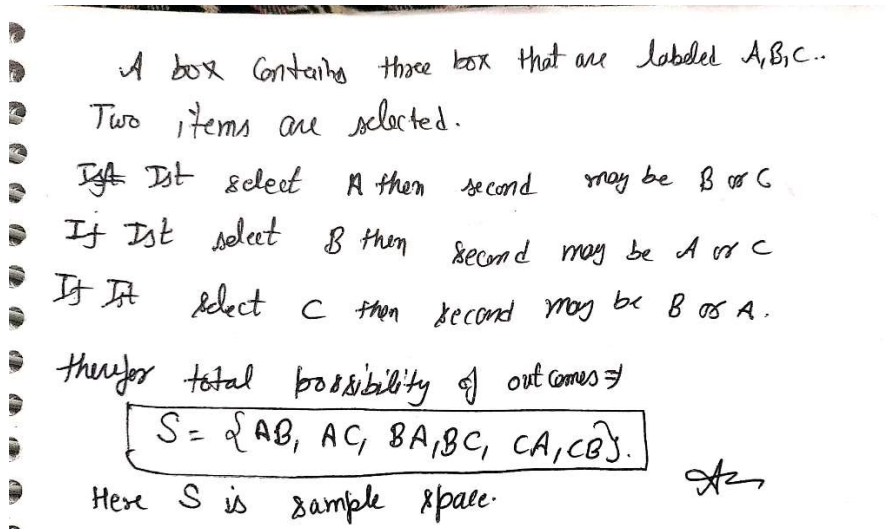 A box Contains three box that are labeled A, B, C..
Two items are selected.
Ist select A then second may be B or C
If Ist select B then second may be A or C
If Ist select C then second may be B or A.
therefor total possibility of outcomes ⇒
S = {AB, AC, BA, BC, CA, CB}.
Here S is sample space.